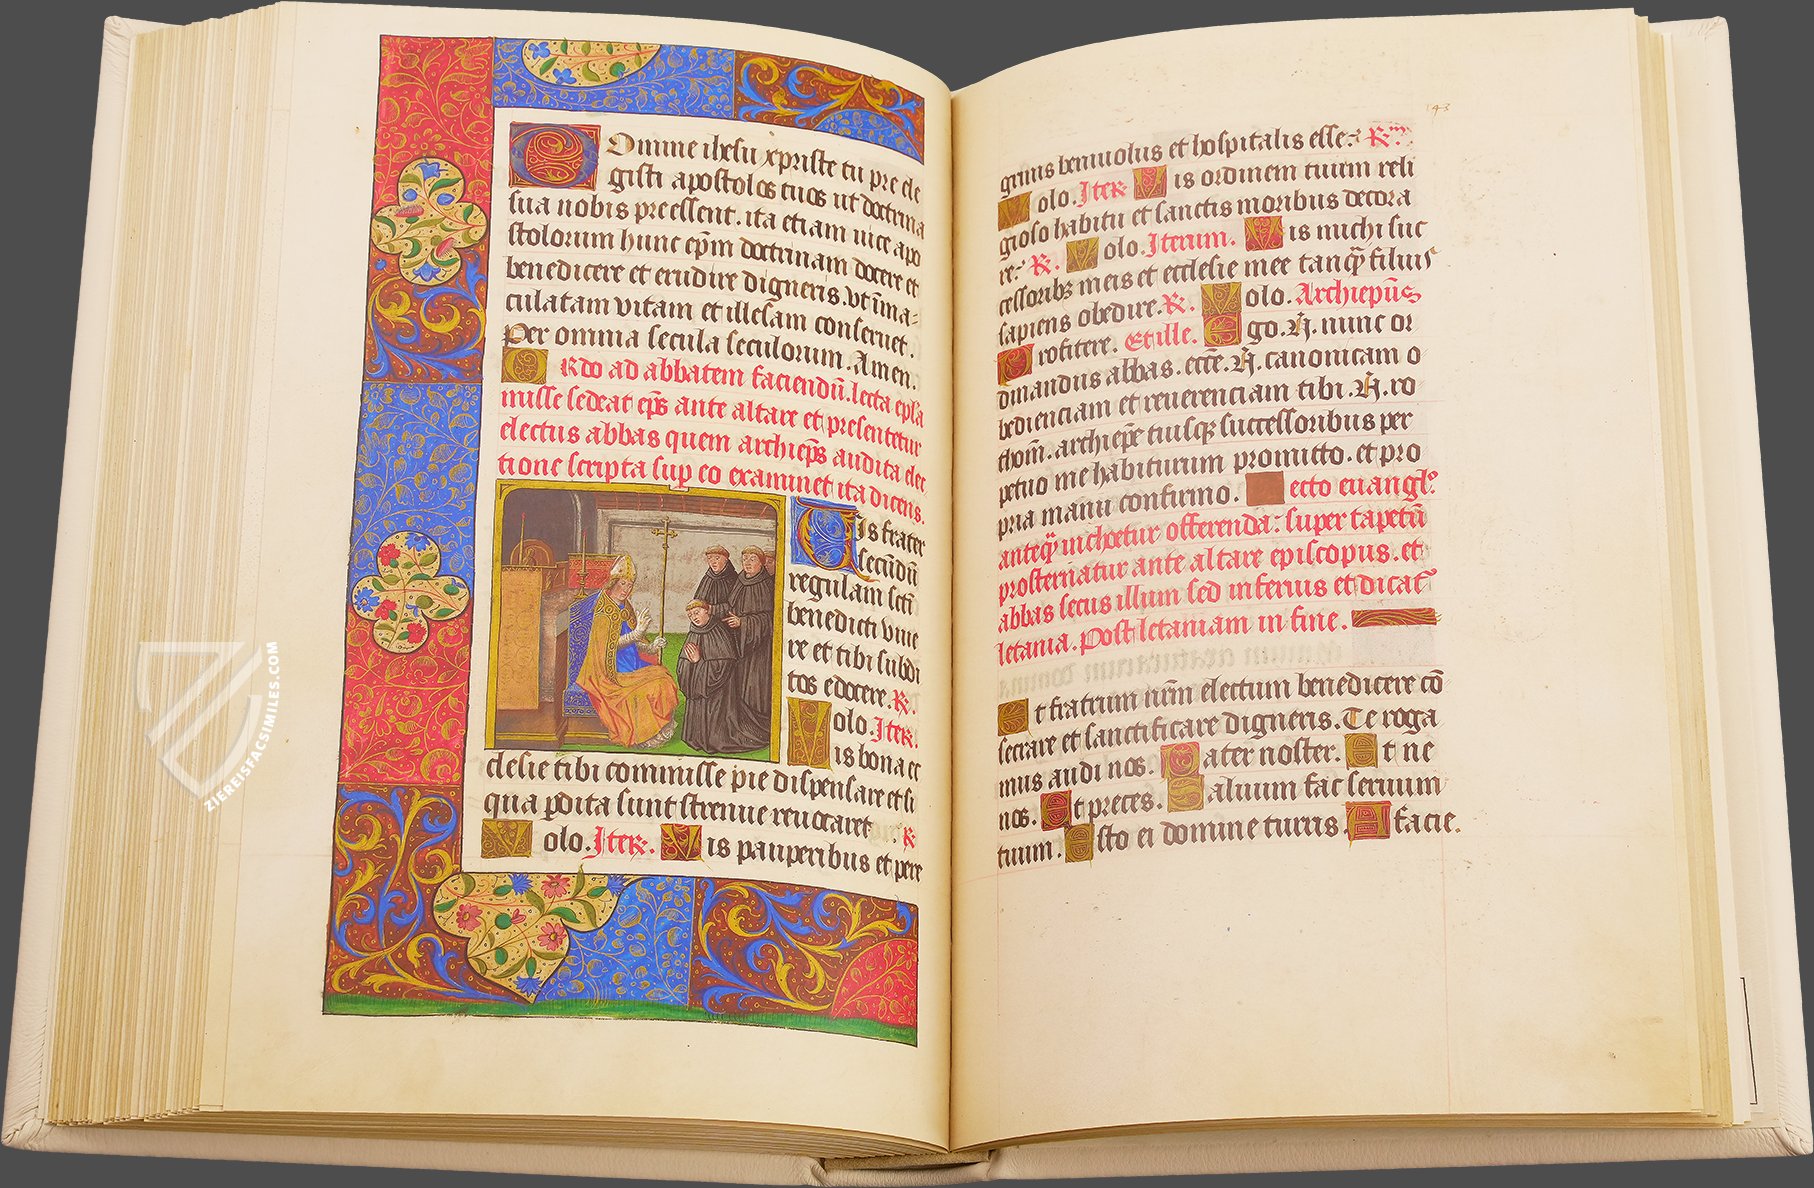 Omine ihesu xpriste tu pre ele
gisti apostolos tuos ut doctrina
sua nobis preessent. ita etiam uice apo
stolorum hunc ep̄m doctrinam docere et
benedicere et erudire digneris. vt īma-
culatam vitam et illesam conseruet.
Per omnia secula seculorum. Amen.
ORdo ad abbatem faciendū. lecta epl̄a
misse sedeat ep̄s ante altare et presentetur
electus abbas quem archiep̄s audita elec
tione scripta sup eo examinet ita dicens.
Uis frater
secūdū
regulam scī
benedicti viue
re et tibi subdi
tos edocere. R.
Volo. Iter.
Vis bona ec
clesie tibi commisse pie dispensare et si
qua pdita sunt strenue reuocaret R
Volo. Iter. Vis pauperibus et pere
143
grinis beniuolus et hospitalis esse. R.m
Volo. Iter. Vis ordinem tuum reli
gioso habitu et sanctis moribus decora
re. R. Volo. Iterum. Vis michi suc
cessoribꝫ meis et ecclesie mee tanqꝫ filius
sapiens obedire. R. Volo. Archiep̄us
Profitere. Et ille. Ego. N. nunc or
dinandus abbas. ecc̄e. N. canonicam o
bedienciam et reuerenciam tibi. N. ro
thom. archiep̄e tuisqꝫ successoribus per
petuo me habiturum promitto. et pro
pria manu confirmo. ecto euangl.
anteqꝫ inchoetur offerenda: super tapetū
prosternatur ante altare episcopus. et
abbas secus illum sed inferius et dicat
letania. Post letaniam in fine.
Et fratrum nr̄m electum benedicere cō
secrare et sanctificare digneris. Te roga
mus audi nos. Pater noster. Et ne
nos. Et preces. Saluum fac seruum
tuum. Esto ei domine turris. A facie.
ZIEREISFACSIMILES.COM